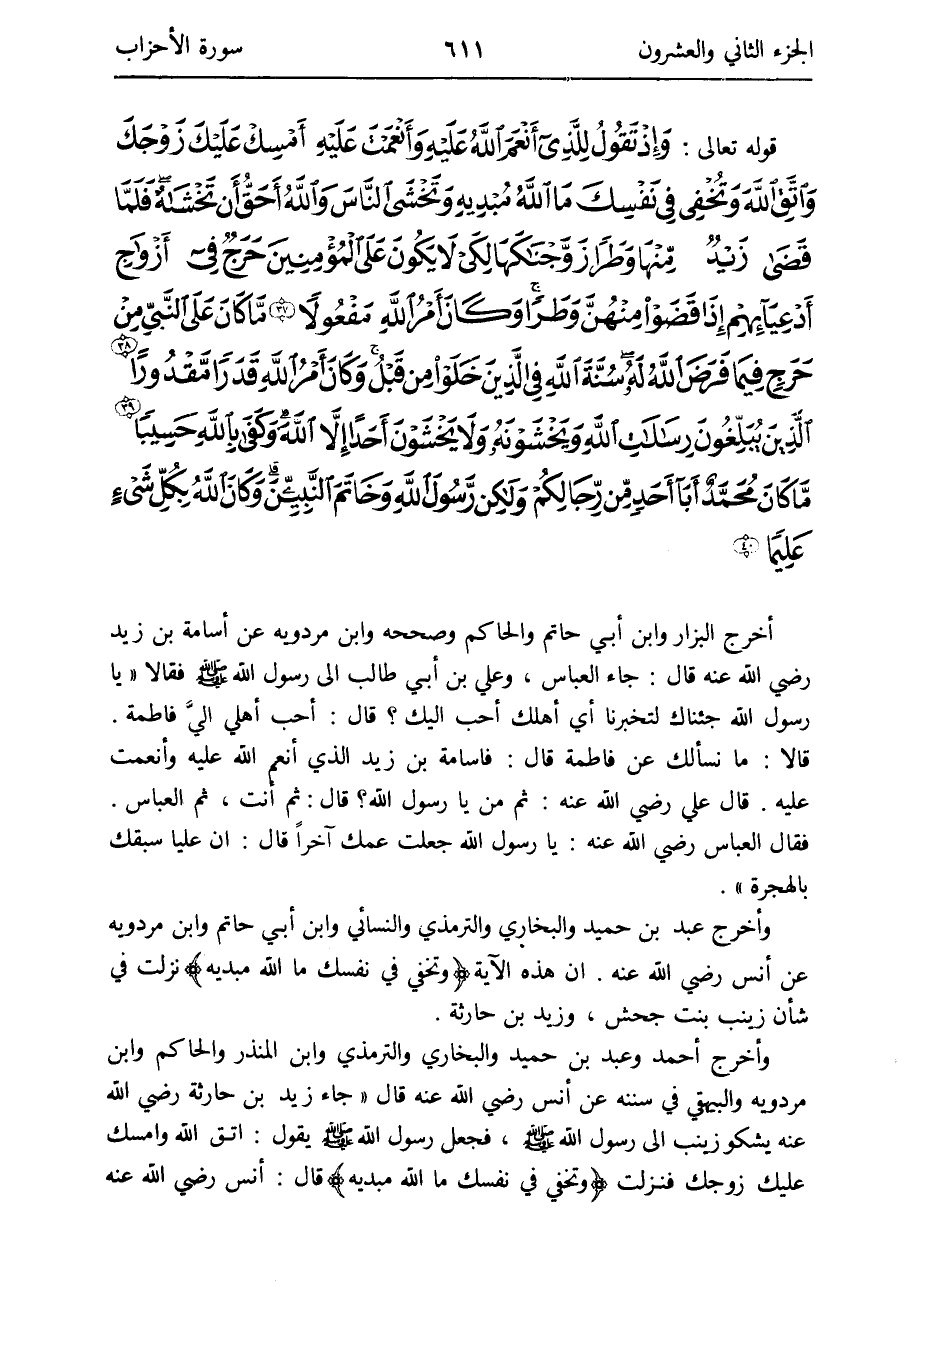 الجزء الثاني والعشرون ٦١١ سورة الأحزاب
قوله تعالى : وَإِذْ تَقُولُ لِلَّذِىٓ أَنْعَمَ ٱللَّهُ عَلَيْهِ وَأَنْعَمْتَ عَلَيْهِ أَمْسِكْ عَلَيْكَ زَوْجَكَ
وَٱتَّقِ ٱللَّهَ وَتُخْفِى فِى نَفْسِكَ مَا ٱللَّهُ مُبْدِيهِ وَتَخْشَى ٱلنَّاسَ وَٱللَّهُ أَحَقُّ أَن تَخْشَىٰهُ ۖ فَلَمَّا
قَضَىٰ زَيْدٌ مِّنْهَا وَطَرًا زَوَّجْنَٰكَهَا لِكَىْ لَا يَكُونَ عَلَى ٱلْمُؤْمِنِينَ حَرَجٌ فِىٓ أَزْوَٰجِ
أَدْعِيَآئِهِمْ إِذَا قَضَوْا۟ مِنْهُنَّ وَطَرًا ۚ وَكَانَ أَمْرُ ٱللَّهِ مَفْعُولًا ٣٧ مَّا كَانَ عَلَى ٱلنَّبِىِّ مِنْ
حَرَجٍ فِيمَا فَرَضَ ٱللَّهُ لَهُۥ ۖ سُنَّةَ ٱللَّهِ فِى ٱلَّذِينَ خَلَوْا۟ مِن قَبْلُ ۚ وَكَانَ أَمْرُ ٱللَّهِ قَدَرًا مَّقْدُورًا ٣٨
ٱلَّذِينَ يُبَلِّغُونَ رِسَٰلَٰتِ ٱللَّهِ وَيَخْشَوْنَهُۥ وَلَا يَخْشَوْنَ أَحَدًا إِلَّا ٱللَّهَ ۗ وَكَفَىٰ بِٱللَّهِ حَسِيبًا ٣٩
مَّا كَانَ مُحَمَّدٌ أَبَآ أَحَدٍ مِّن رِّجَالِكُمْ وَلَٰكِن رَّسُولَ ٱللَّهِ وَخَاتَمَ ٱلنَّبِيِّـۧنَ ۗ وَكَانَ ٱللَّهُ بِكُلِّ شَىْءٍ
عَلِيمًا ٤٠
أخرج البزار وابن أبي حاتم والحاكم وصححه وابن مردويه عن أسامة بن زيد
رضي الله عنه قال : جاء العباس ، وعلي بن أبي طالب الى رسول الله ﷺ فقالا « يا
رسول الله جئناك لتخبرنا أي أهلك أحب اليك ؟ قال : أحب أهلي اليَّ فاطمة .
قالا : ما نسألك عن فاطمة قال : فاسامة بن زيد الذي أنعم الله عليه وأنعمت
عليه . قال علي رضي الله عنه : ثم من يا رسول الله؟ قال : ثم أنت ، ثم العباس .
فقال العباس رضي الله عنه : يا رسول الله جعلت عمك آخراً قال : ان عليا سبقك
بالهجرة » .
وأخرج عبد بن حميد والبخاري والترمذي والنسائي وابن أبي حاتم وابن مردويه
عن أنس رضي الله عنه . ان هذه الآية ﴿وتخفي في نفسك ما الله مبديه﴾ نزلت في
شأن زينب بنت جحش ، وزيد بن حارثة .
وأخرج أحمد وعبد بن حميد والبخاري والترمذي وابن المنذر والحاكم وابن
مردويه والبيهقي في سننه عن أنس رضي الله عنه قال « جاء زيد بن حارثة رضي الله
عنه يشكو زينب الى رسول الله ﷺ ، فجعل رسول الله ﷺ يقول : اتق الله وامسك
عليك زوجك فنزلت ﴿وتخفي في نفسك ما الله مبديه﴾ قال : أنس رضي الله عنه